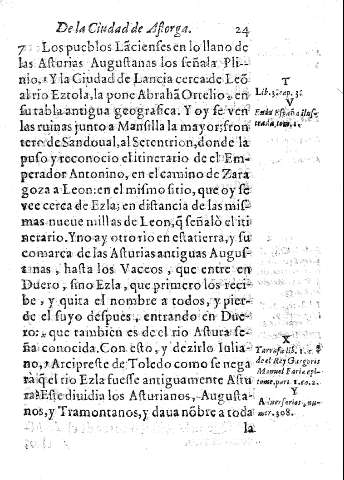 De la Ciudad de Astorga. 24
7 Los pueblos Lãcienses en lo llano de
las Asturias Augustanas los señala Pli-
nio. Y la Ciudad de Lancia cerca de Leõ
al rio Eztola, la pone Abrahã Ortelio, en
su tabla antigua geografica. Y oy se ven
las ruinas junto a Mansilla la mayor; fron
tero de Sandoual, al Setentrion, donde la
puso y reconocio el itinerario de el Em-
perador Antonino, en el camino de Zara
goza a Leon: en el mismo sitio, que oy se
vee cerca de Ezla; en distancia de las mis-
mas nueue millas de Leon, q̃ señalò el iti
nerario. Y no ay otro rio en esta tierra, y su
comarca de las Asturias antiguas Augus-
tanas, hasta los Vaceos, que entre en
Duero, sino Ezla, que primero los reci-
be, y quita el nombre a todos, y pier-
de el suyo despues, entrando en Due-
ro: que tambien es de el rio Astura se-
ña conocida. Con esto, y dezirlo Iulia-
no, Arcipreste de Toledo como se nega
rà q̃ el rio Ezla fuesse antiguamente Astu
ra? Este diuidia los Asturianos, Augusta-
nos, y Tramontanos, y daua nõbre a toda
la
T
Lib. 3. cap. 3.
V
En la España illus-
trada, tom. 1.
X
Tarrafa lib. 1. c.
de el Rey Gargoris
Manuel Faria epi-
tome, part. 1. co. 2.
Y
Aduersarios, nu-
mer. 308.